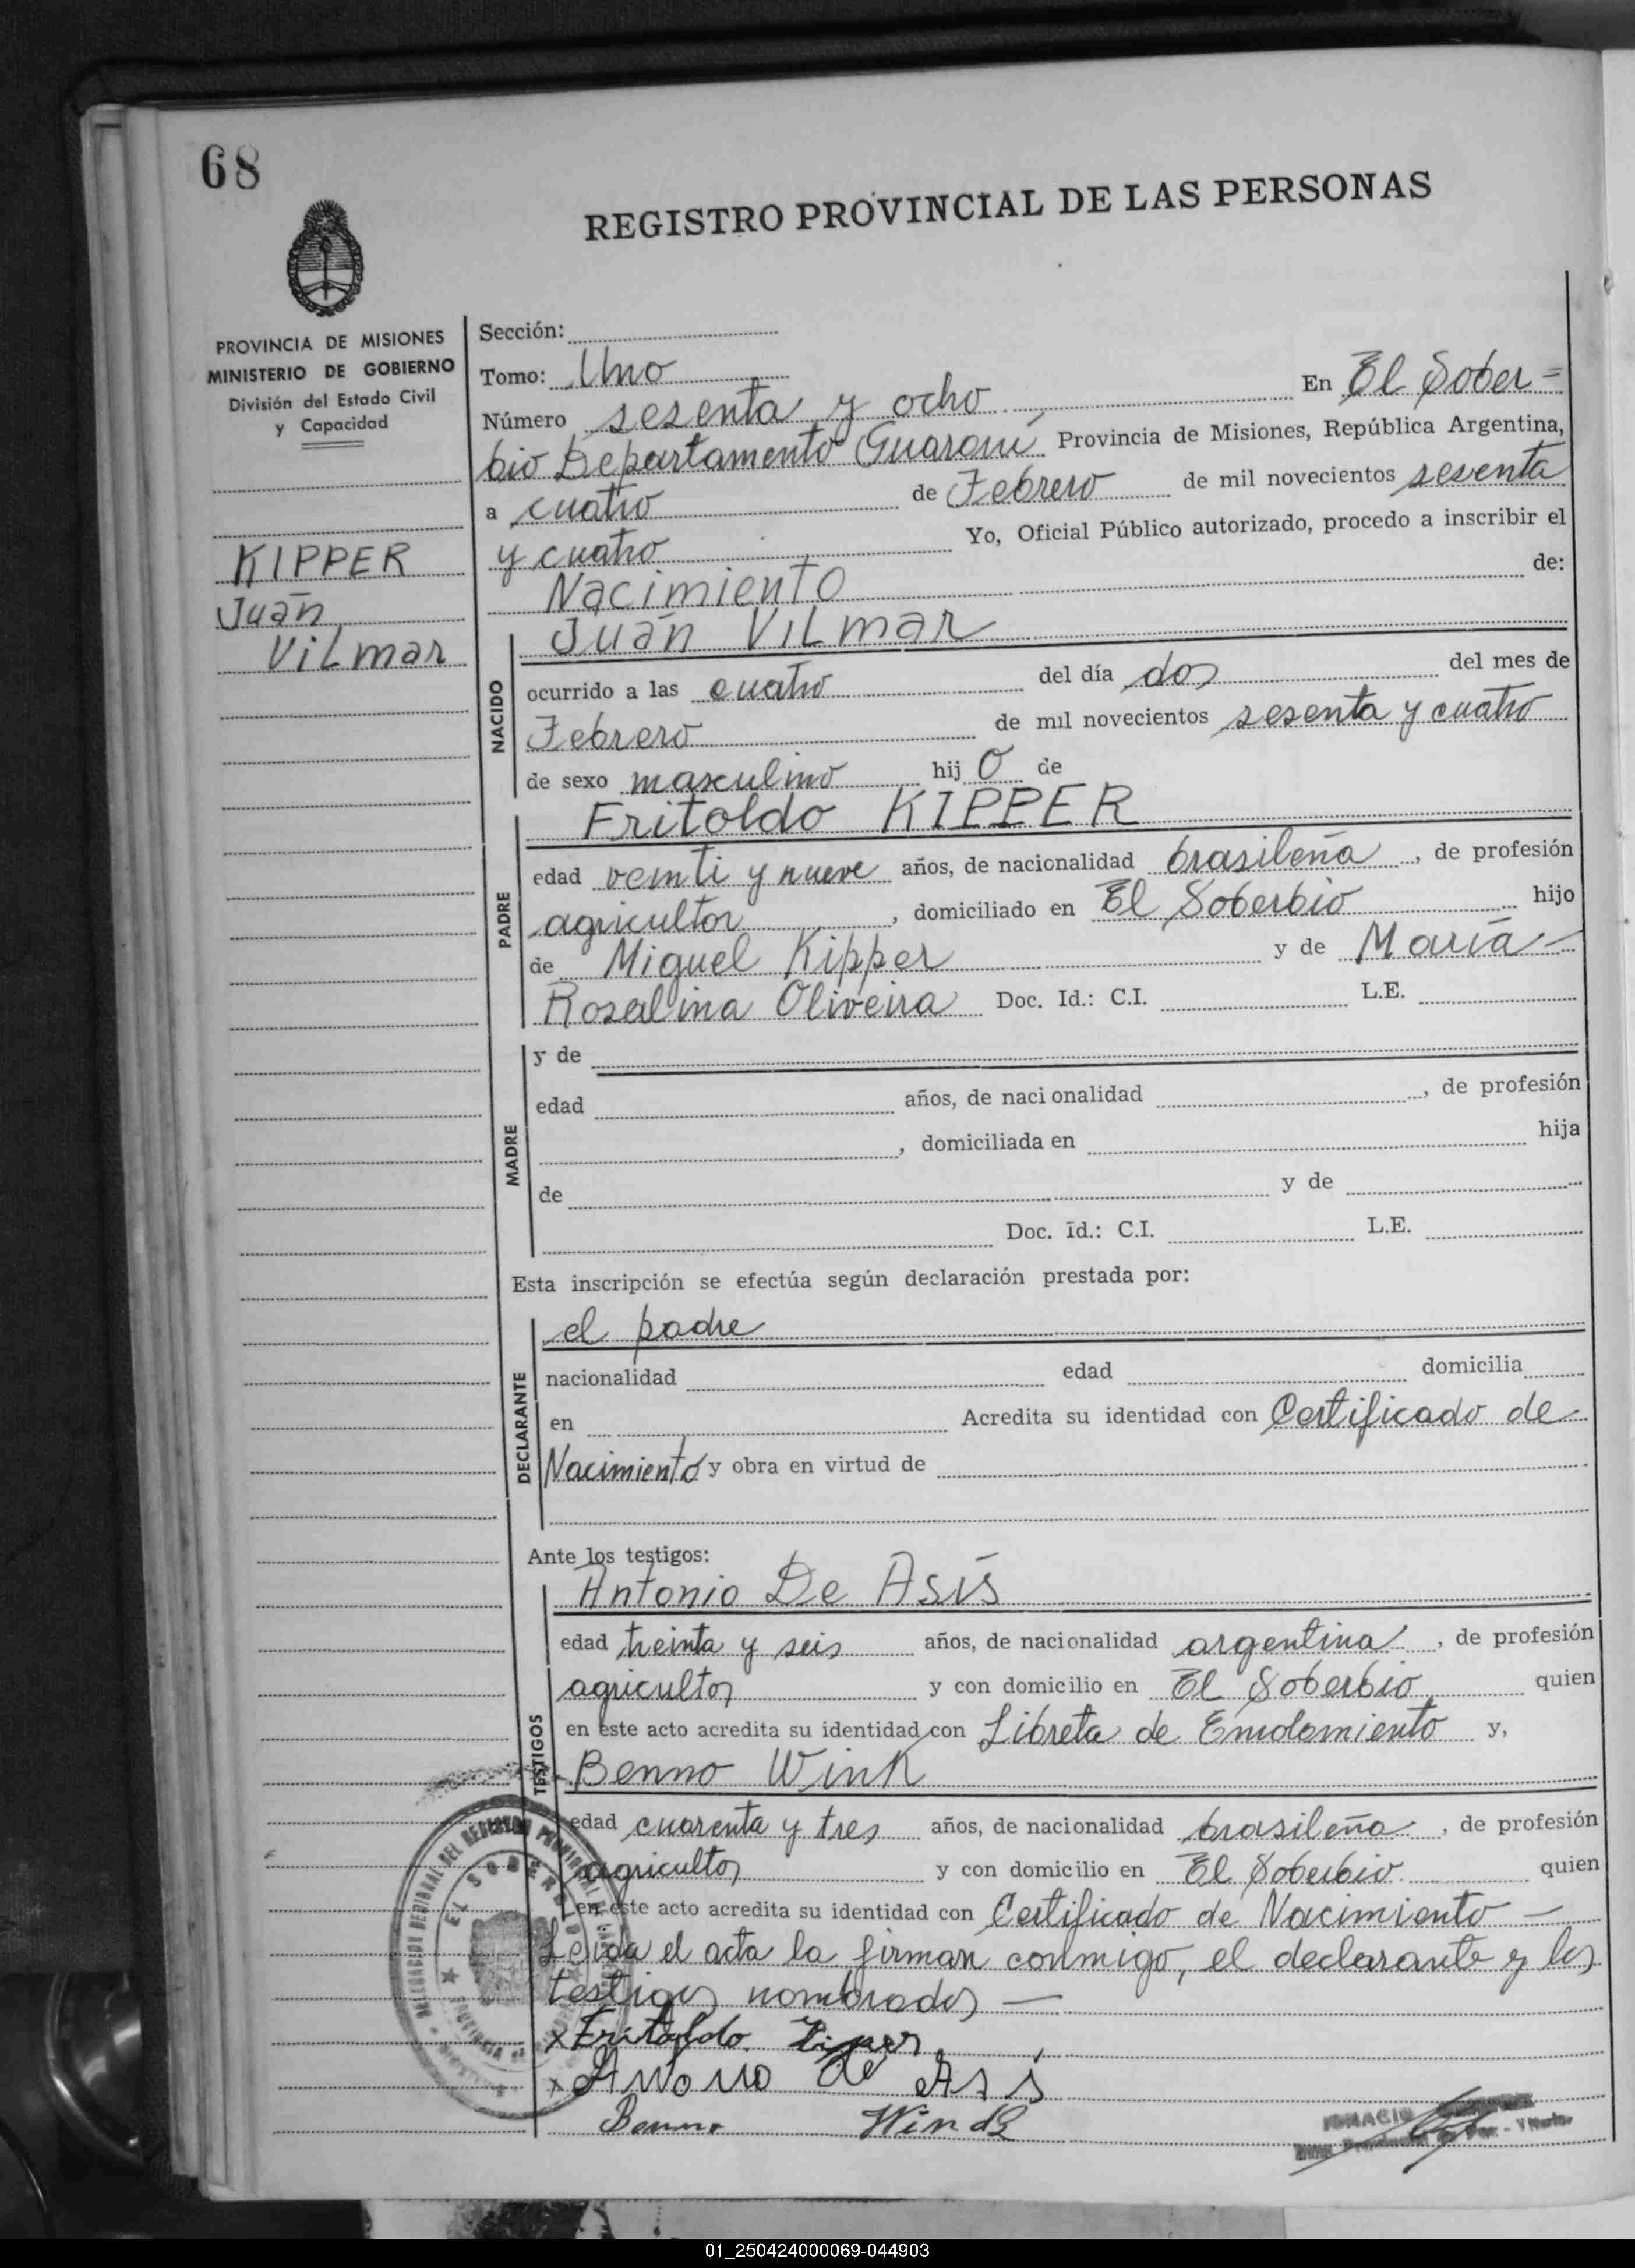 68
REGISTRO PROVINCIAL DE LAS PERSONAS
PROVINCIA DE MISIONES
MINISTERIO DE GOBIERNO
División del Estado Civil
y Capacidad
KIPPER
Juan
Vilmar
Sección:
Tomo: Uno
Número sesenta y ocho En El Sober=
bio Departamento Guaraní Provincia de Misiones, República Argentina,
a cuatro de Febrero de mil novecientos sesenta
y cuatro Yo, Oficial Público autorizado, procedo a inscribir el
Nacimiento de:
NACIDO
Juan Vilmar
ocurrido a las cuatro del día dos del mes de
Febrero de mil novecientos sesenta y cuatro
de sexo masculino hij o de
PADRE
Fritoldo KIPPER
edad veinti y nueve años, de nacionalidad brasileña, de profesión
agricultor, domiciliado en El Soberbio hijo
de Miguel Kipper y de María
Rosalina Oliveira Doc. Id.: C.I. L.E.
MADRE
y de
edad años, de nacionalidad , de profesión
, domiciliada en hija
de y de
Doc. Id.: C.I. L.E.
Esta inscripción se efectúa según declaración prestada por:
DECLARANTE
el padre
nacionalidad edad domicilia
en Acredita su identidad con Certificado de
Nacimiento y obra en virtud de
Ante los testigos:
TESTIGOS
Antonio De Asís
edad treinta y seis años, de nacionalidad argentina, de profesión
agricultor y con domicilio en El Soberbio quien
en este acto acredita su identidad con Libreta de Enrolamiento y,
Benno Wink
edad cuarenta y tres años, de nacionalidad brasileña, de profesión
agricultor y con domicilio en El Soberbio quien
en este acto acredita su identidad con Certificado de Nacimiento —
Leída el acta la firman conmigo, el declarante y los
testigos nombrados —
x Fritoldo
x Antonio de Asis
Benno
IGNACIO
EL SOBERBIO
01_250424000069-044903